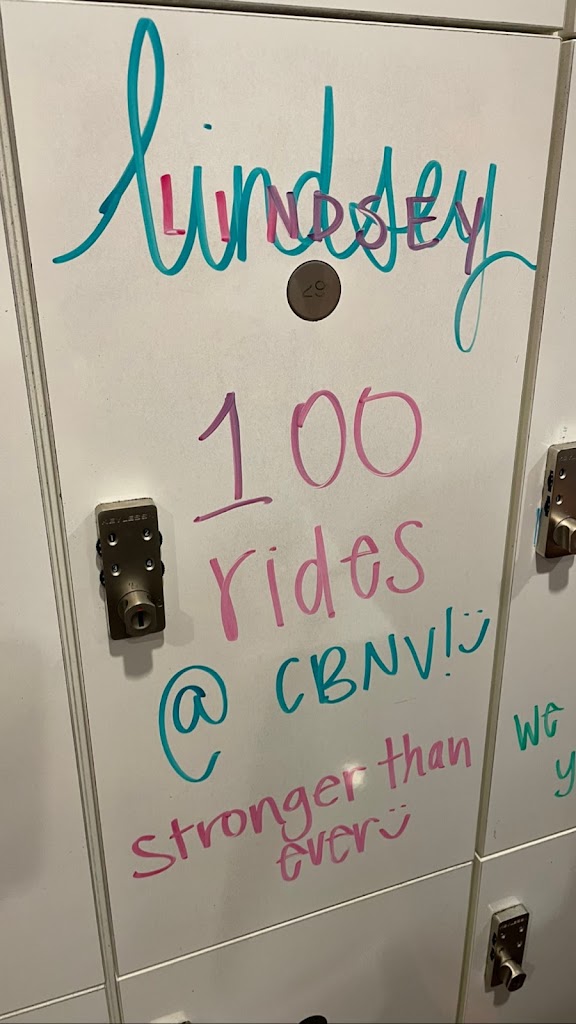 lindsey
LINDSEY
29
100
rides
@ CBNV! :)
stronger than
ever :)
KEYLESS
We
y